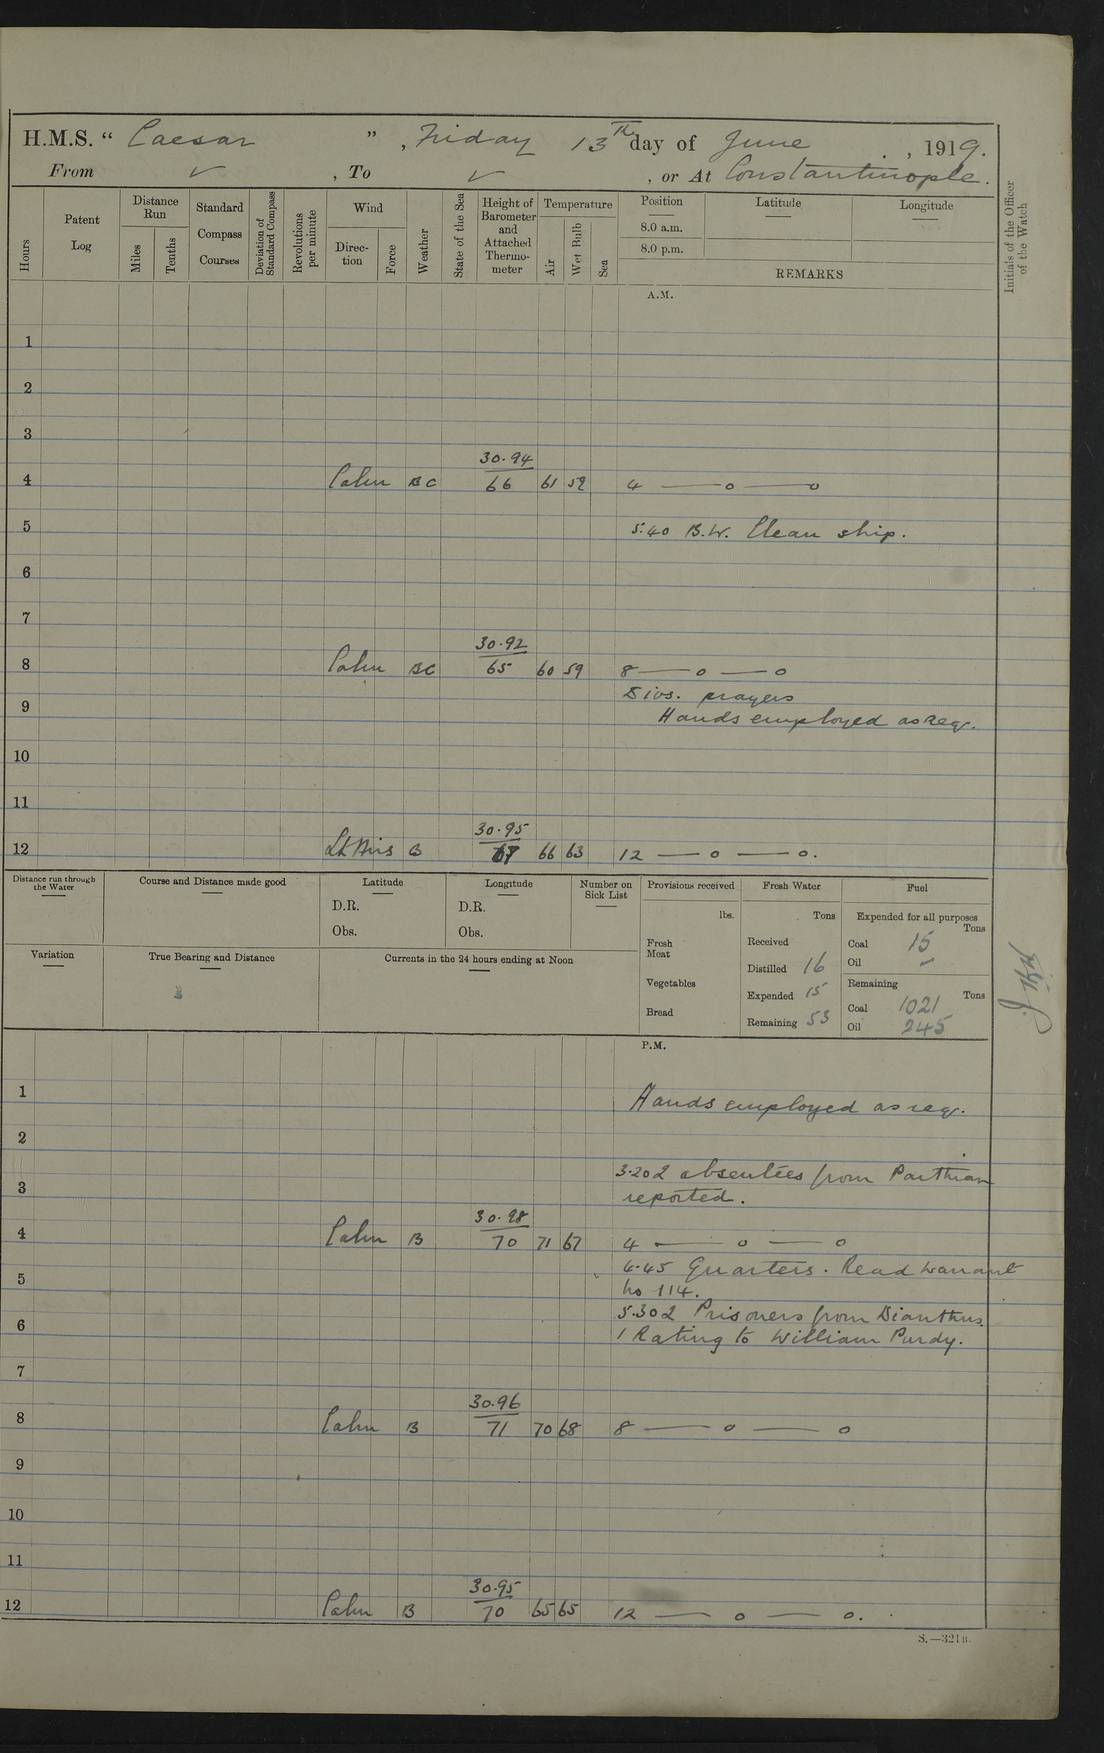 H.M.S. “ Caesar ”, Friday 13th day of June, 1919.
From ✓, To ✓, or At Constantinople.
Hours
Patent Log
Distance Run
Miles
Tenths
Standard Compass Courses
Deviation of Standard Compass
Revolutions per minute
Wind
Direc-tion
Force
Weather
State of the Sea
Height of Barometer and Attached Thermo-meter
Temperature
Air
Wet Bulb
Sea
Position
Latitude
Longitude
8.0 a.m.
8.0 p.m.
REMARKS
Initials of the Officer of the Watch
A.M.
1
2
3
30.94
4 Calm BC 66 61 59 4 — o — o
5 5.40 B.W. Clean ship.
6
7
30.92
8 Calm BC 65 60 59 8 — o — o
Divs. prayers
9 Hands employed as req.
10
11
30.95
12 Lt Airs B 67 66 63 12 — o — o.
Distance run through the Water
Course and Distance made good
Latitude
D.R.
Obs.
Longitude
D.R.
Obs.
Number on Sick List
Provisions received
lbs.
Fresh Meat
Vegetables
Bread
Fresh Water
Tons
Received
Distilled 16
Expended 15
Remaining 53
Fuel
Expended for all purposes
Tons
Coal 15
Oil –
Remaining
Tons
Coal 1021
Oil 245
Variation
True Bearing and Distance
Currents in the 24 hours ending at Noon
P.M.
1 Hands employed as req.
2
3.20 2 absentees from Parthian
3 reported.
30.98
4 Calm B 70 71 67 4 — o — o
4.45 Quarters. Read warrant
5 no 114.
5.30 2 Prisoners from Dianthus.
6 1 Rating to William Purdy.
7
30.96
8 Calm B 71 70 68 8 — o — o
9
10
11
30.95
12 Calm B 70 65 65 12 — o — o.
S.—321B.